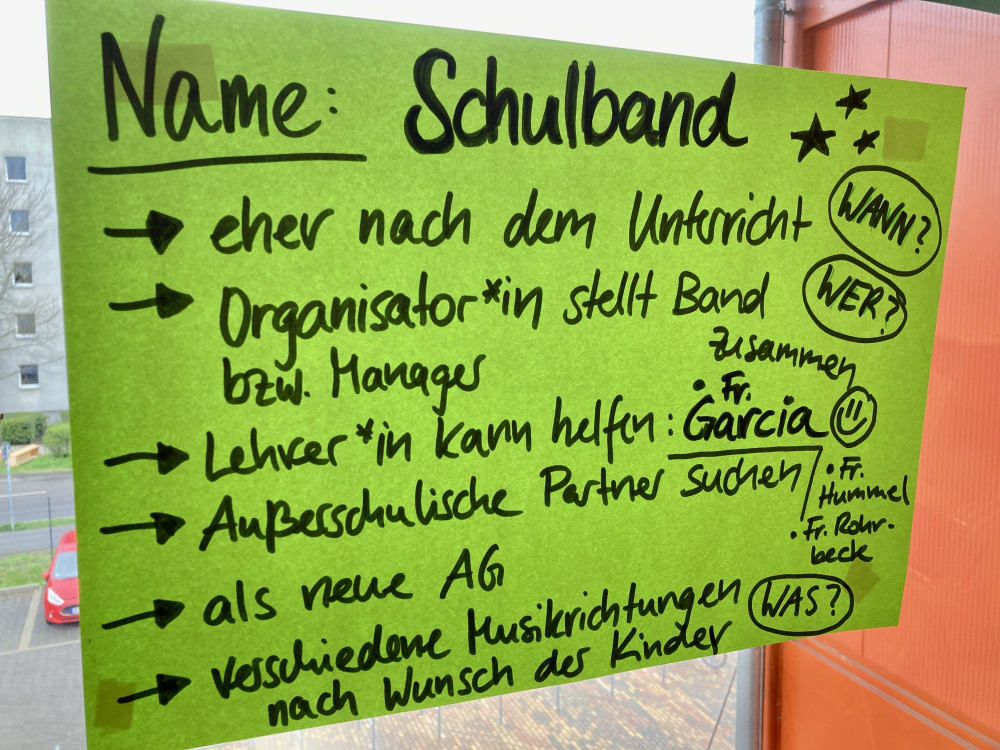 Name: Schulband
→ eher nach dem Unterricht WANN?
→ Organisator*in stellt Band WER?
zusammen
bzw. Manager
→ Lehrer*in kann helfen: • Fr. Garcia
→ Außerschulische Partner suchen
• Fr. Hummel
• Fr. Rohr-
beck
→ als neue AG
→ verschiedene Musikrichtungen WAS?
nach Wunsch der Kinder